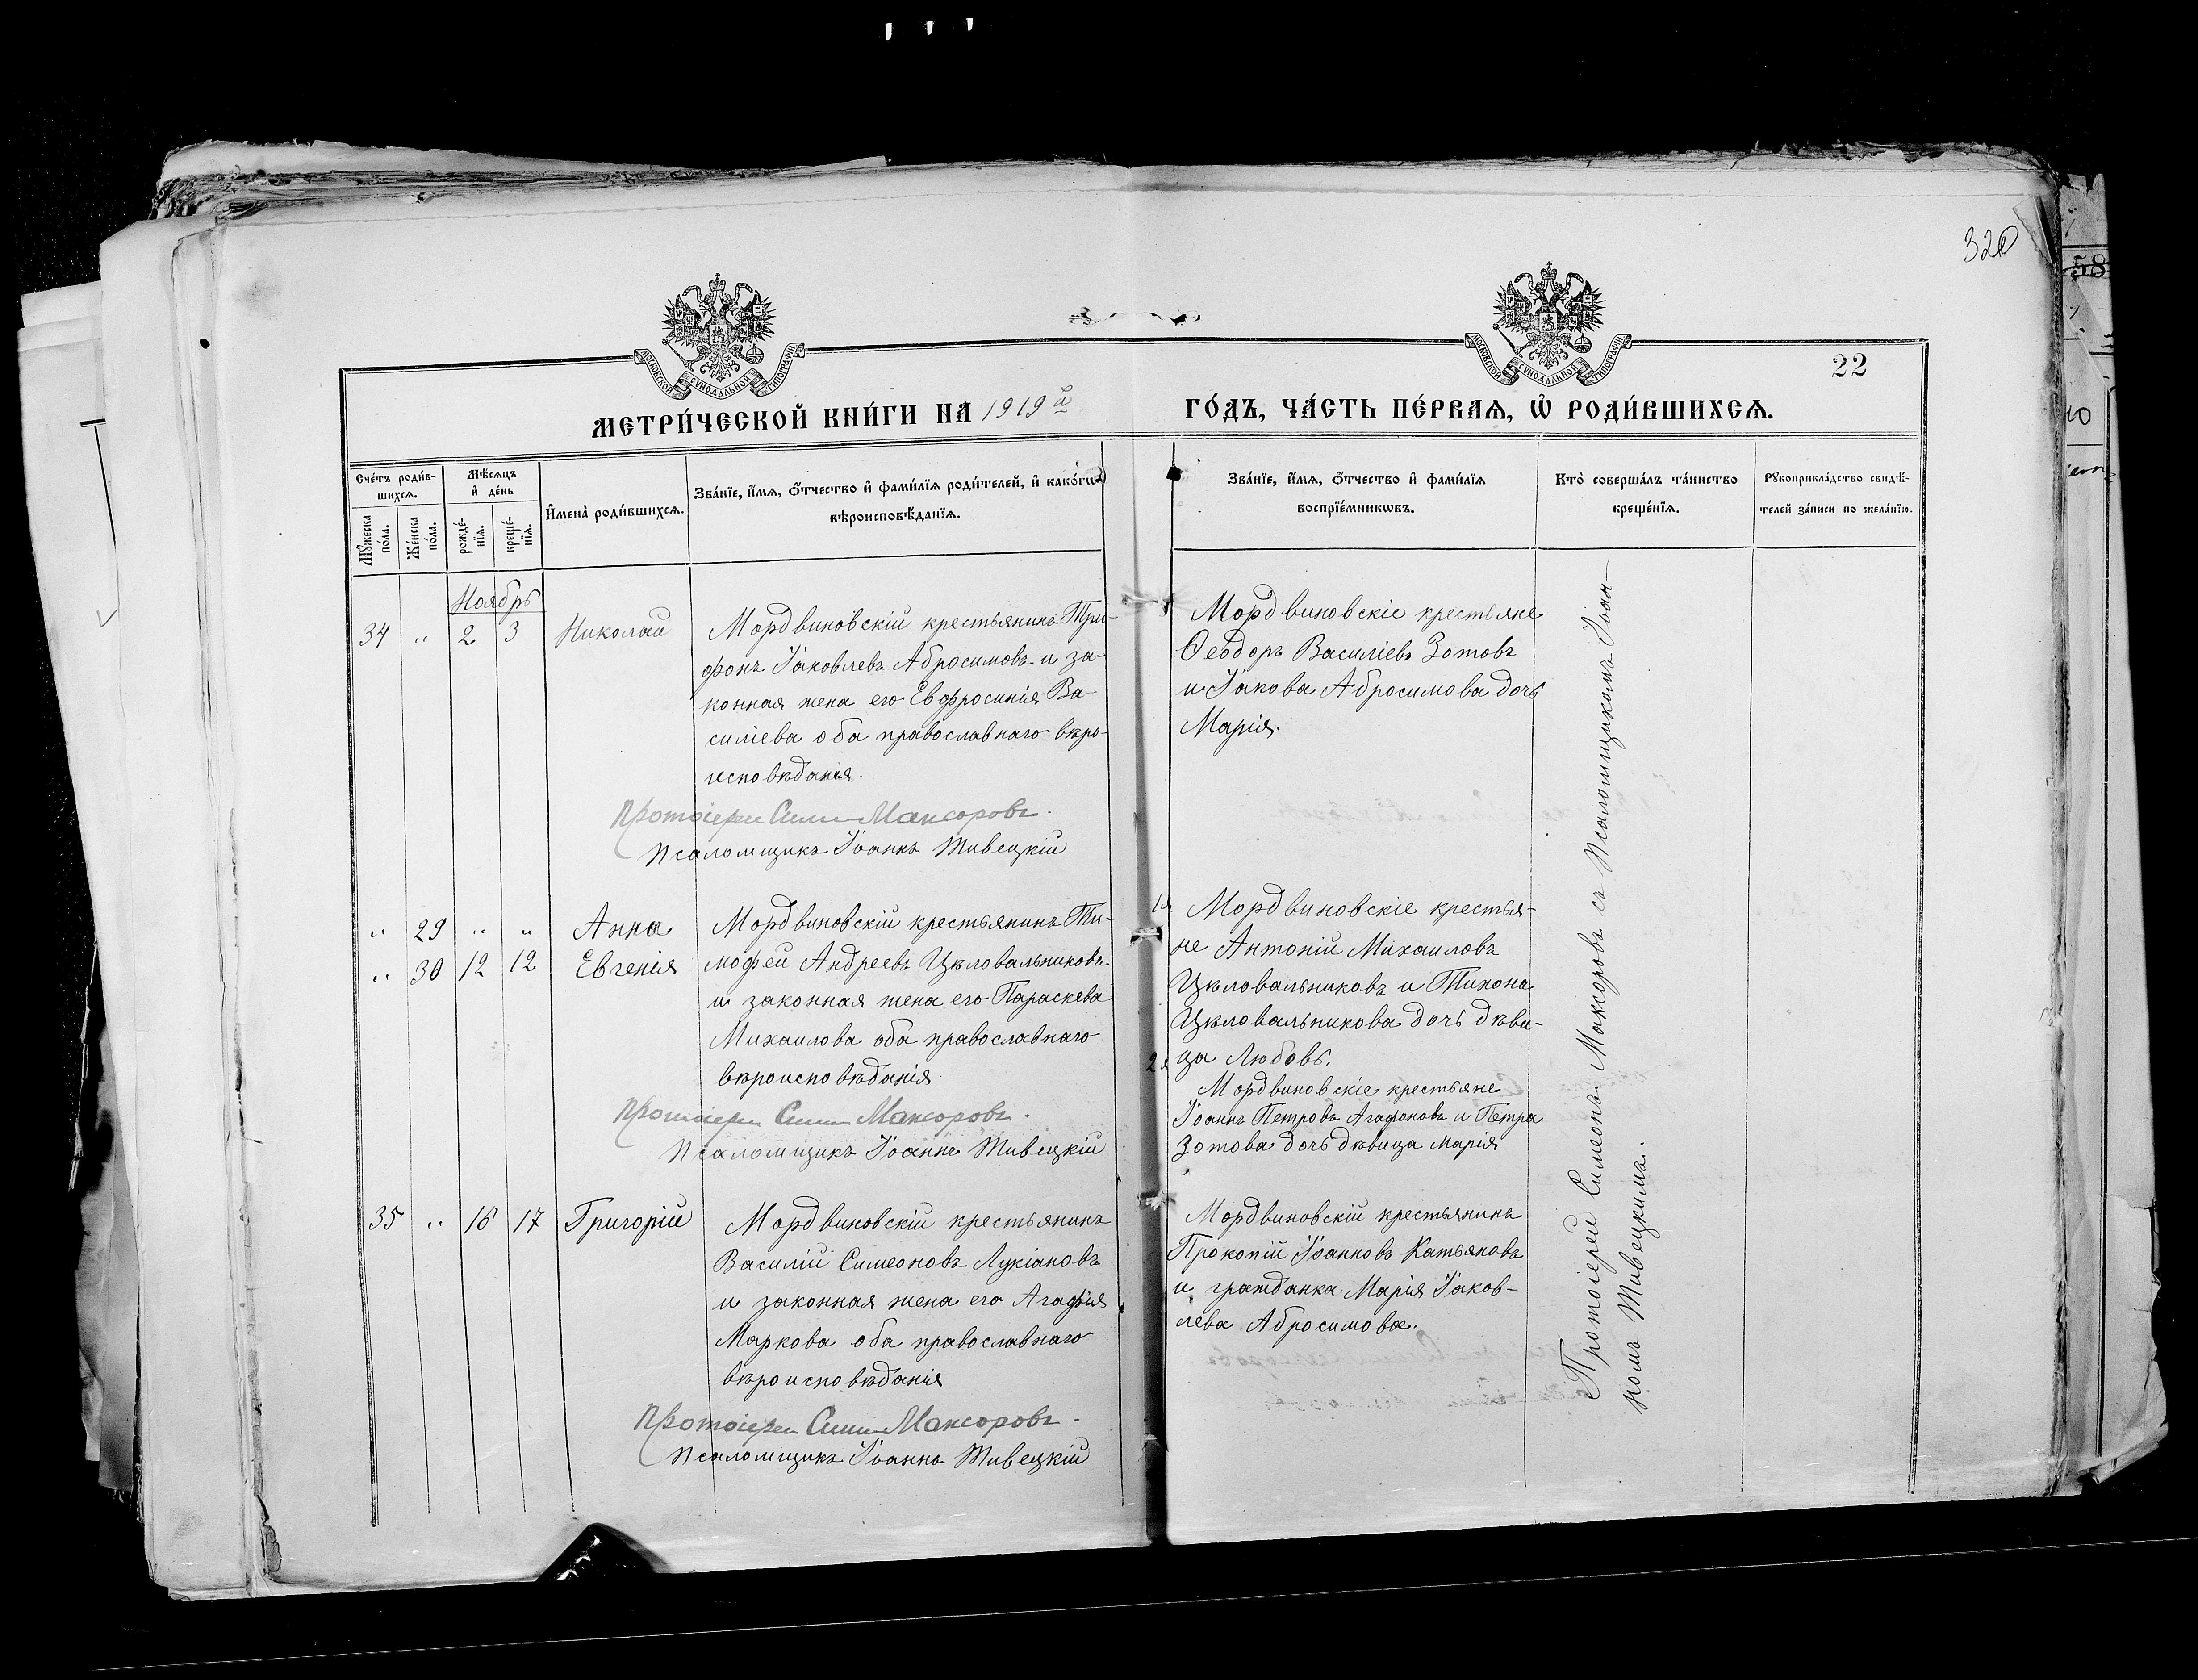 320
МОСКОВСКОЙ СѴНОДАЛЬНОЙ ТИПОГРАФІИ
МОСКОВСКОЙ СѴНОДАЛЬНОЙ ТИПОГРАФІИ
22
МЕТРИ́ЧЕСКОЙ КНИ́ГИ НА 1919й
ГО́ДЪ, ЧА́СТЬ ПЕ́РВАѦ, Ѽ РОДИ́ВШИХСѦ.
Сче́тъ роди́в-
шихсѧ.
Мѣ́сѧцъ
и҆ де́нь
Мꙋ́жеска
по́ла.
Же́нска
по́ла.
рожде́-
нїѧ.
креще́-
нїѧ.
И҆мена̀ роди́вшихсѧ.
Зва́нїе, и҆́мѧ, ѻ҆́тчество и҆ фами́лїѧ роди́телей, и҆ како́гѡ
вѣроисповѣ́данїѧ.
Зва́нїе, и҆́мѧ, ѻ҆́тчество и҆ фами́лїѧ
воспрїе́мникѡвъ.
Кто̀ соверша́лъ та́инство
креще́нїѧ.
Рꙋкоприкла́дство свидѣ́-
телей за́писи по жела́нїю.
Ноябрь
34 " 2 3 Николай
Мордвиновскій крестьянинъ Три-
фонъ Іаковлевъ Абросимовъ и за-
конная жена его Евфросинія Ва-
силіева оба православнаго вѣро-
исповѣданія.
Протоіерей Симеонъ Максоровъ.
Псаломщикъ Іоаннъ Живецкій
Мордвиновскіе крестьяне
Ѳеодоръ Василіевъ Зотовъ
и Іакова Абросимова дочь
Марія.
" 29 " " Анна
" 30 12 12 Евгенія
Мордвиновскій крестьянинъ Ти-
мофей Андреевъ Цѣловальниковъ
и законная жена его Параскева
Михаилова оба православнаго
вѣроисповѣданія
Протоіерей Симеонъ Максоровъ.
Псаломщикъ Іоаннъ Живецкій
1я Мордвиновскіе крестья-
не Антоній Михаиловъ
Цѣловальниковъ и Тихона
Цѣловальникова дочь дѣви-
ца Любовь.
2я Мордвиновскіе крестьяне
Іоаннъ Петровъ Агафоновъ и Петра
Зотова дочь дѣвица Марія
35 " 16 17 Григорій
Мордвиновскій крестьянинъ
Василій Симеоновъ Лукіановъ
и законная жена его Агафія
Маркова оба православнаго
вѣроисповѣданія
Протоіерей Симеонъ Максоровъ.
Псаломщикъ Іоаннъ Живецкій
Мордвиновскій крестьянинъ
Прокопій Іоанновъ Катьяновъ
и гражданка Марія Іаков-
лева Абросимова.
Протоіерей Симеонъ Максоровъ съ Псаломщикомъ Іоан-
номъ Живецкимъ.
58